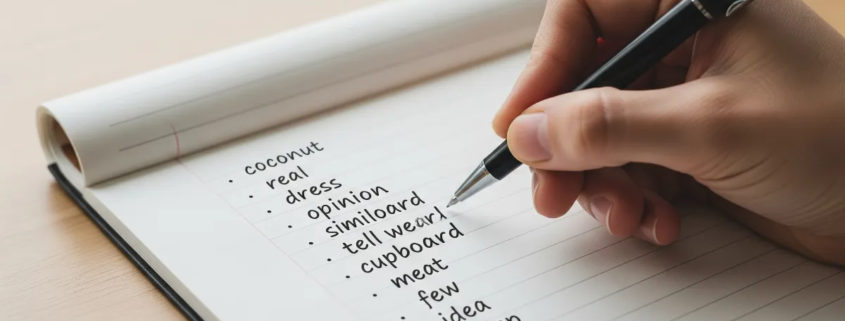 · coconut
· real
· dress
· opinion
· similoard
· tell wearl
· cupboard
· meat
· few
idea